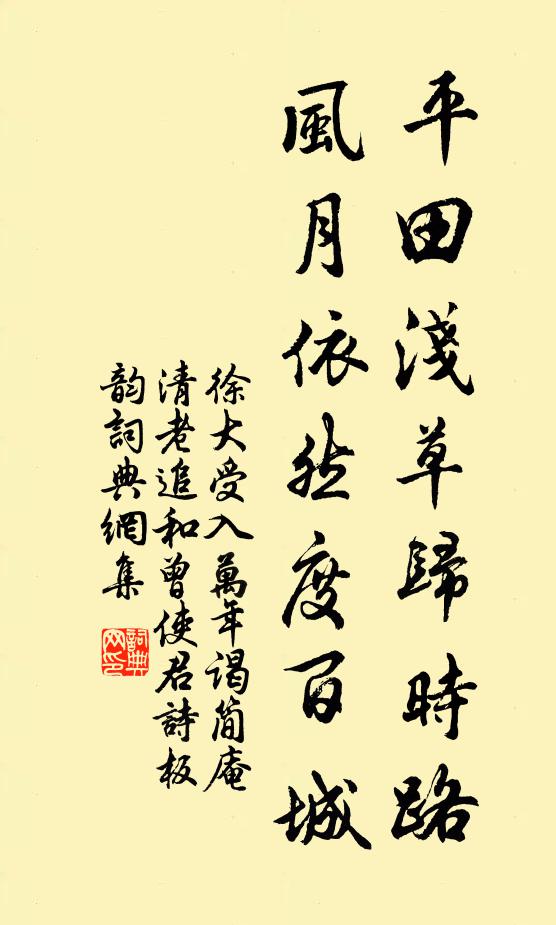 平田淺草歸時路
風月依然度百城
徐大受入萬年謁簡庵
清老追和曾使君詩板
韵詞典網集
詞典网印